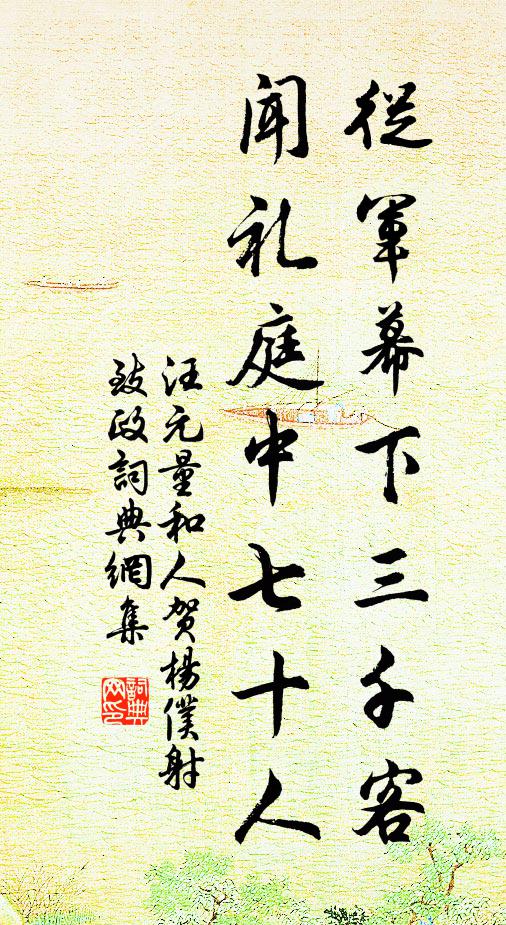 從軍幕下三千客
聞礼庭中七十人
汪元量和人贺楊僕射
致政詞典網集
詞典网印